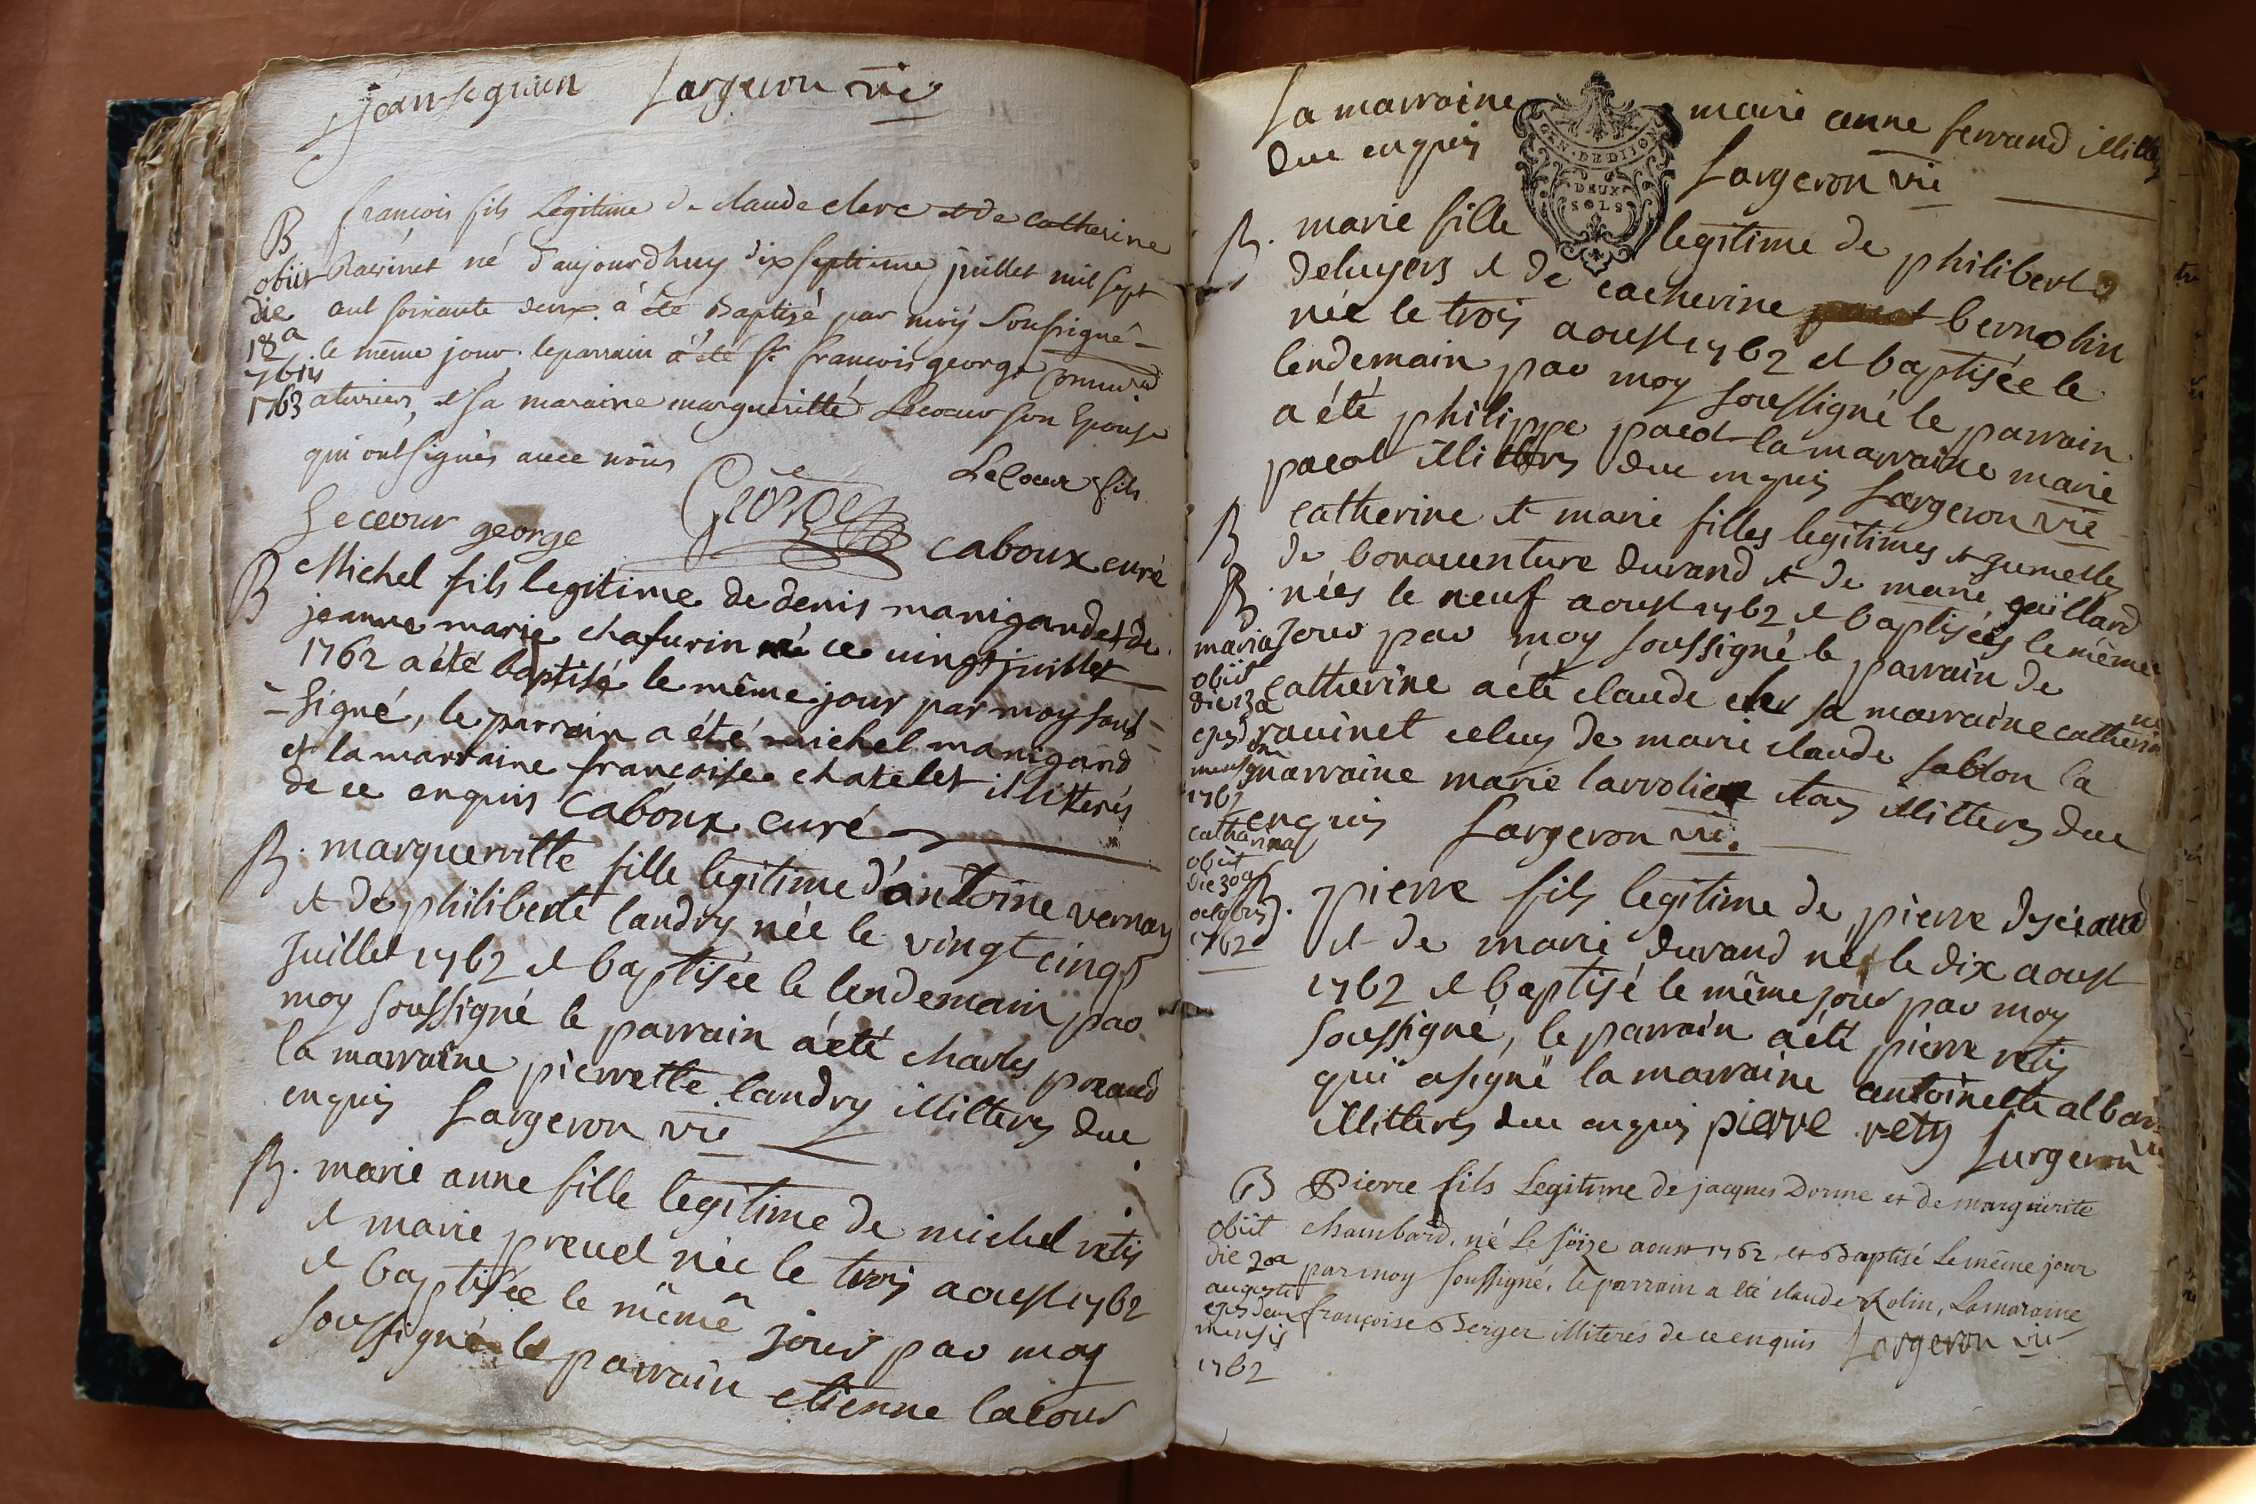 jean seguin Largeron vic
B françois fils Legitime de claude clerc et de catherine
obiit Ravinet né d'aujourdhuy dix septieme juillet mil sept
die cent soixante deux a été Baptizé par moÿ Soussigné
18a le même jour. le parrain a été Sr françois george
7bris
1763 et sa maraine margueritte Lecoeur son Epouse
qui ont signés avec nôus
George LeCoeur fils
Lecoeur george caboux curé
B Michel fils legitime de denis manigand et de
jeanne marie chafurin né ce vingt juillet
1762 a été baptisé le même jour par moy sous-
-signé, le parrain a été michel manigand
et la marraine françoise chatelet illitterés
de ce enquis Caboux curé
B. marguerritte fille legitime d'antoine vernay
et de philiberte landry née le vingt cinq
Juillet 1762 et baptisée le lendemain par
moy soussigné le parrain a été charles
la marraine pierrette landry illitterés due
enquis Largeron vic
B. marie anne fille legitime de michel retis
et marie prevel née le trois aoust 1762
et baptisée le même jour par moy
soussigné le parrain etienne lacour
la marraine marie anne ferrand
due enquis Largeron vic
GEN. DE DIJON
DEUX
SOLS
B. marie fille legitime de philibert
deluyers et de catherine bernolin
née le trois aoust 1762 et baptisée le
lendemain par moy soussigné le parrain
a été philippe pacot la marraine marie
pacot illitterés due enquis Largeron vic
B catherine et marie filles legitimes et gumelles
de bonaventure durand et de marie gaillard
B. nées le neuf aoust 1762 et baptisées le même
maria jour par moy soussigné le parrain de
obiit catherine a été claude cler sa marraine catherine
die 13a ravinet celuy de marie claude sablon la
ejusdem marraine marie larrolier illitterés due
mensis
1762 enquis Largeron vic.
catharina
obiit
die 30a
octobris
1762
B. pierre fils legitime de pierre
et de marie durand né le dix aoust
1762 et baptisé le même jour par moy
soussigné, le parrain a été pierre retis
qui a signé la marraine antoinette
illitterés due enquis pierre rety Largeron vic
B Pierre fils Legitime de jacques Dorme et de marguerite
obiit chambard, né Le söize aoust 1762 et Baptisé Le même jour
die 20a par moy soussigné. le parrain a été claude Rolin, La maraine
augusti
ejusdem françoise Berger illiterés de ce enquis Largeron vic
mensis
1762